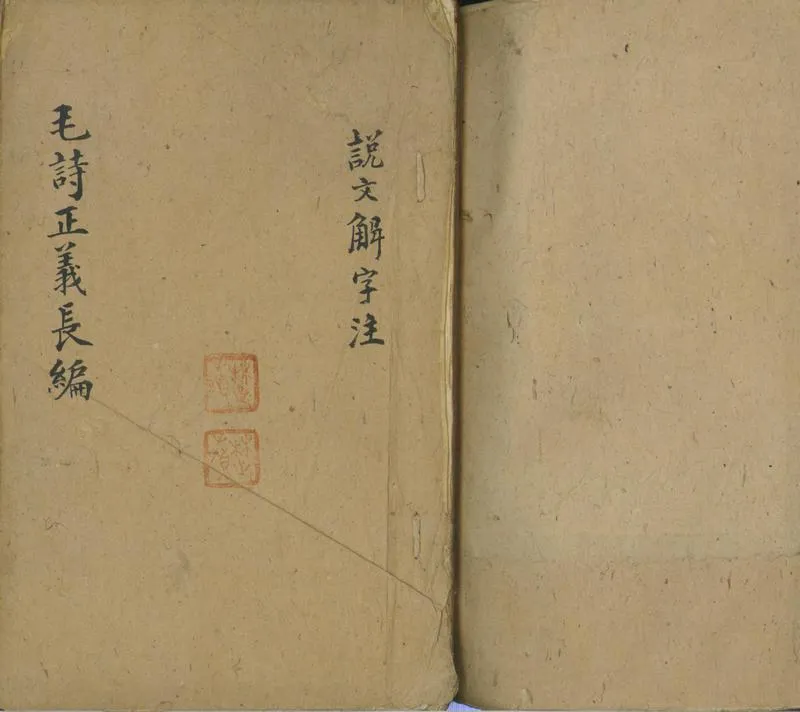 說文解字注
毛詩正義長編